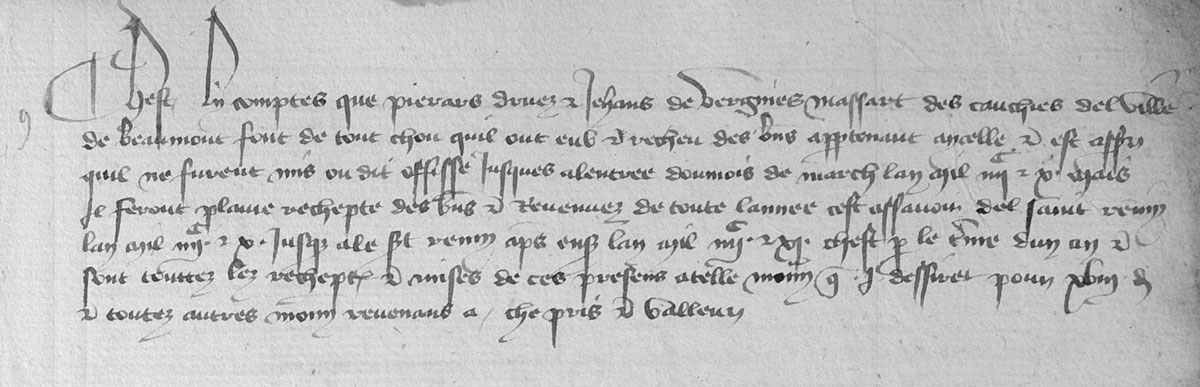 Chest li comptes que pierars druez et Jehans de vergnies massart des cauchies del ville
de beaumont font de tout chou quil ont eub et recheu des bns apptenant a ycelle et est assavoir
quil ne furent mis ou dit offisse Jusques a lentree dou mois de march lan mil iiijc et x. mais
Il feront plaine rechepte des bns et Revenuez de toute lannee cest assavoir del saint remy
lan mil iiijc et x. Jusqz a le st remy aps ensz lan mil iiijc et xj. chest p le tme dun an et
sont touttez lez recheptes et mises de ces presens a telle monn q J dessiret pour xviij d
et toutez autres monn revenans a che pris et valleur